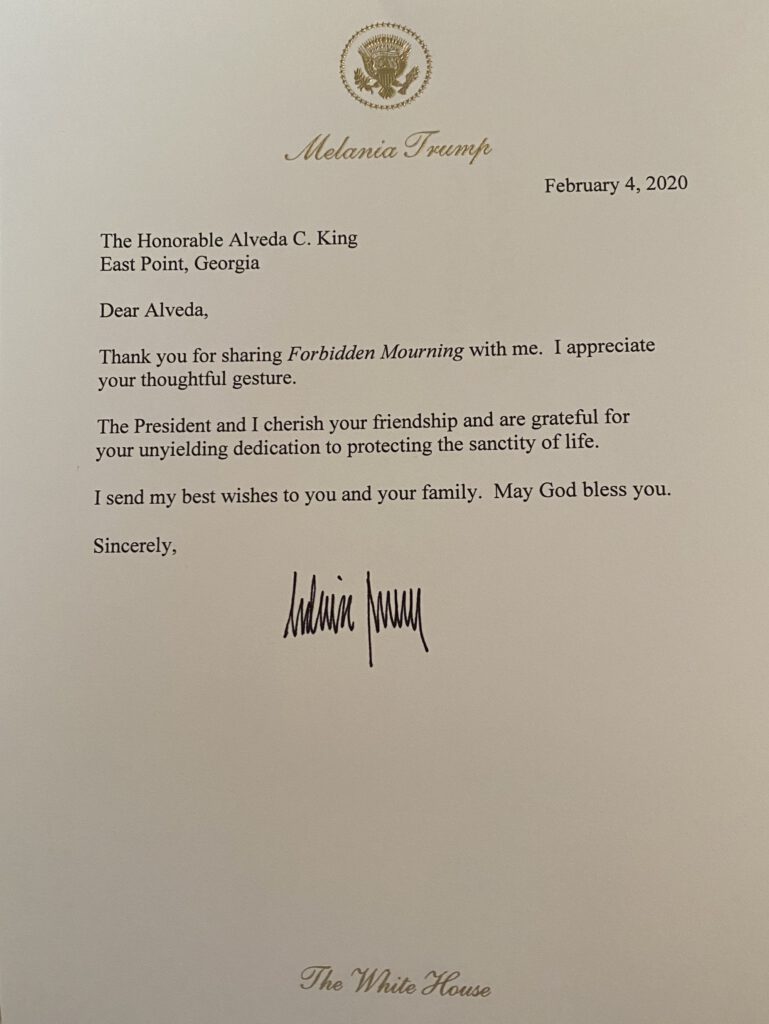 Melania Trump
February 4, 2020
The Honorable Alveda C. King
East Point, Georgia
Dear Alveda,
Thank you for sharing Forbidden Mourning with me.  I appreciate
your thoughtful gesture.
The President and I cherish your friendship and are grateful for
your unyielding dedication to protecting the sanctity of life.
I send my best wishes to you and your family.  May God bless you.
Sincerely,
The White House